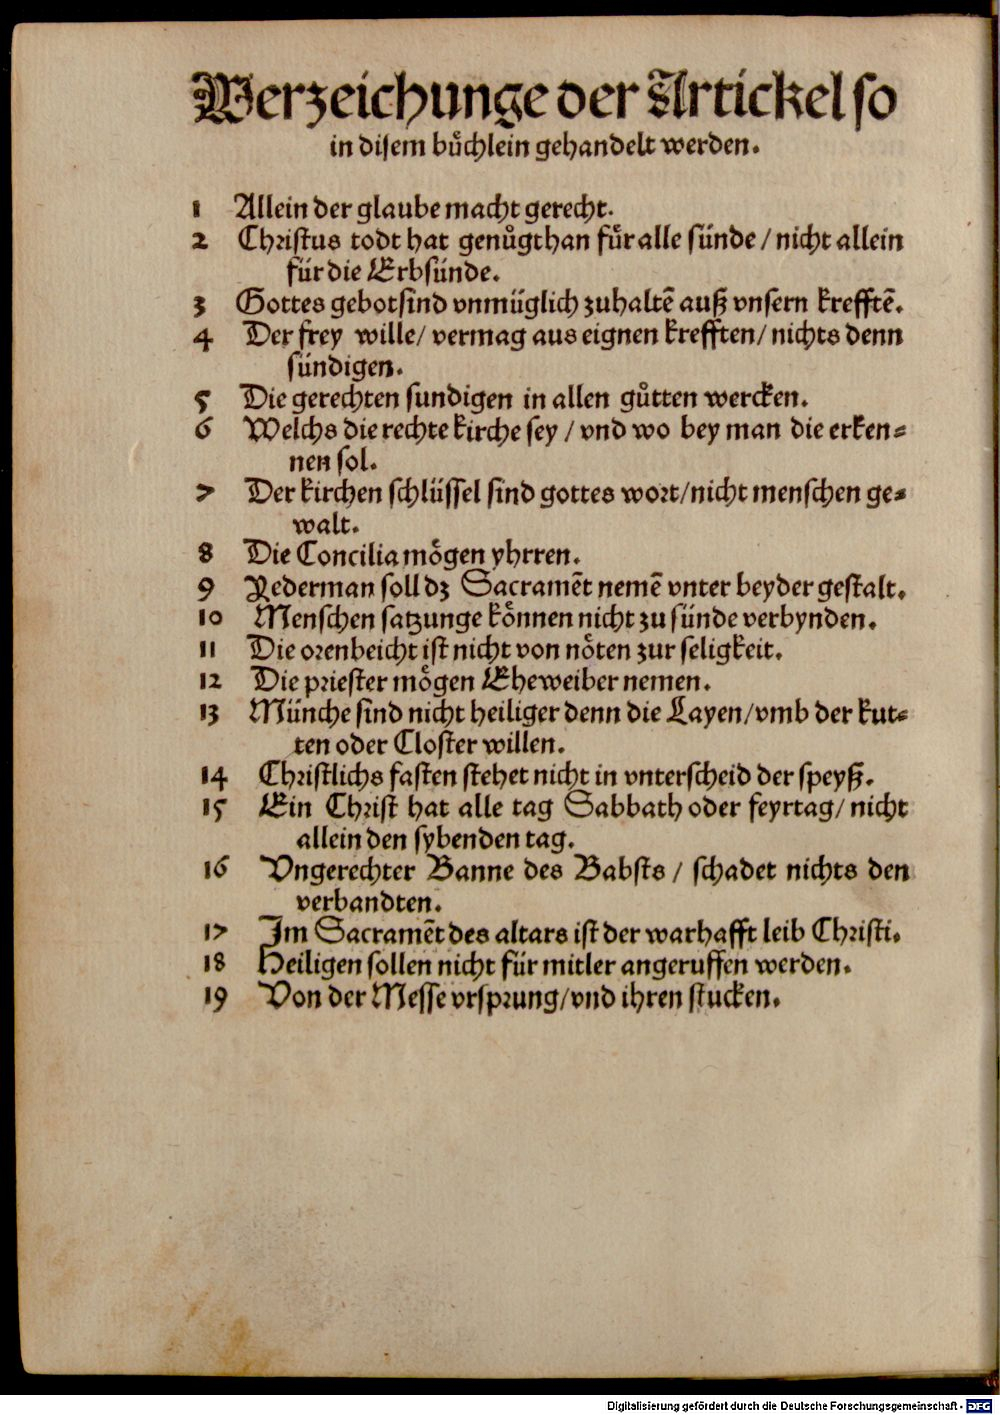 Verzeichunge der Artickel so
in disem bůchlein gehandelt werden.
1 Allein der glaube macht gerecht.
2 Christus todt hat genůgthan fůr alle sünde / nicht allein
für die Erbsünde.
3 Gottes gebot sind vnmüglich zuhaltē auß vnsern krefftē.
4 Der frey wille / vermag aus eignen krefften / nichts denn
sündigen.
5 Die gerechten sundigen in allen gůtten wercken.
6 Welchs die rechte kirche sey / vnd wo bey man die erken⸗
nen sol.
7 Der kirchen schlüssel sind gottes wort / nicht menschen ge⸗
walt.
8 Die Concilia mögen yhrren.
9 Yederman soll dz Sacramēt nemē vnter beyder gestalt.
10 Menschen satzunge können nicht zu sünde verbynden.
11 Die orenbeicht ist nicht von nöten zur seligkeit.
12 Die priester mögen Eheweiber nemen.
13 Münche sind nicht heiliger denn die Layen / vmb der kut⸗
ten oder Closter willen.
14 Christlichs fasten stehet nicht in vnterscheid der speyß.
15 Ein Christ hat alle tag Sabbath oder feyrtag / nicht
allein den sybenden tag.
16 Vngerechter Banne des Babsts / schadet nichts den
verbandten.
17 Im Sacramēt des altars ist der warhafft leib Christi.
18 Heiligen sollen nicht für mitler angeruffen werden.
19 Von der Messe vrsprung / vnd ihren stucken.
Digitalisierung gefördert durch die Deutsche Forschungsgemeinschaft - DFG